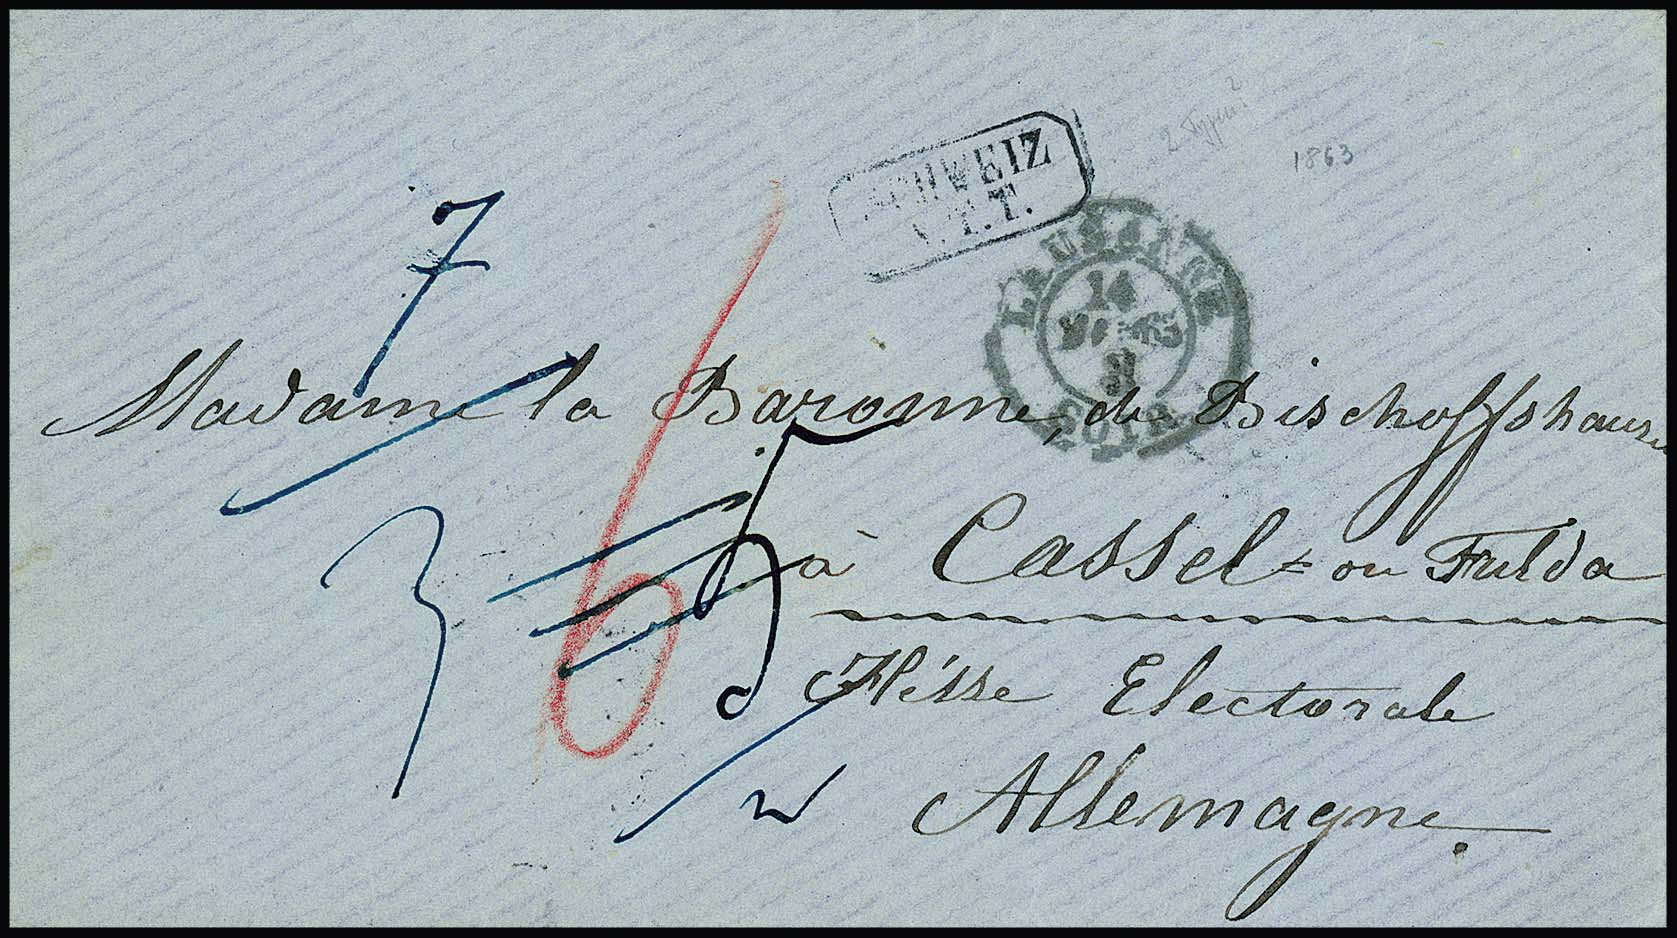 1863
SCHWEIZ
LAUSANNE
14
3
SOIR
7
Madame la Baronne, de Bischoffshausen
6
5
3
à Cassel - ou Fulda
Hésse Electorale
Allemagne.